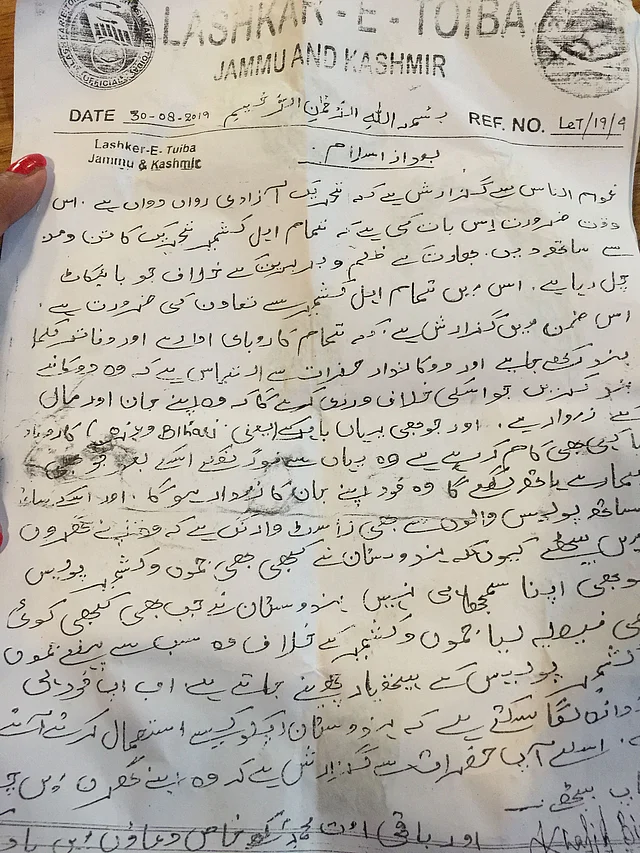 LASHKAR - E - TOIBA
JAMMU AND KASHMIR
DATE 30-08-2019 بسم اللہ الرحمٰن الرحیم REF. NO. LeT/19/9
Lashker-E- Tuiba
Jammu & Kashmir
بعد از اسلام
عوام الناس سے گزارش ہے کہ تحریک آزادی رواں دواں ہے ۔ اس
وقت ضرورت اس بات کی ہے کہ تمام اہل کشمیر تحریک کا تن
سے ساتھ دیں ۔ بھارت کے ظلم و بربریت کے خلاف جو بائیکاٹ
چل رہا ہے ۔ اس میں تمام اہل کشمیر سے تعاون کی ضرورت ہے ۔
اس ضمن میں گزارش ہے کہ تمام کاروباری ادارے اور دفاتر
بند رکھے جائے اور دوکاندار حضرات سے التماس ہے کہ وہ دوکانے
بند کریں جو اسکی خلاف ورزی کرے گا کہ وہ اپنے جان اور مال
کے زموار ہے ۔ اور جو بھی یہاں باہر کے (یعنی Bihari وغیرہ) کاروبار
یا کوئی بھی کام کر رہے ہے وہ یہاں سے اسکے بعد جو بھی
ہمارے ہاتھ لگے گا وہ خود اپنے جان کا زموار ہو گا ۔ اور اسکے ساتھ
ساتھ پولیس والوں سے بھی گزارش ہے کہ وہ اپنے گھروں
میں بیٹھے کیوں کہ ہندوستان نے کبھی بھی جموں و کشمیر پولیس
کو بھی اپنا سمجھا ہی نہیں ہندوستان نے جب بھی کبھی کوئی
بھی فیصلہ لیا جموں و کشمیر کے خلاف وہ سب سے پہلے جموں
کشمیر پولیس کے ہتھیار چھینے جاتے ہے اب آپ خود ہی
اندازہ لگا سکتے ہے کہ ہندوستان آپکو کیسے استعمال کرتے آئے
ہے ۔ اسلئے آپ حضرات سے گزارش ہے کہ وہ اپنے گھروں میں
بیٹھے
اور باقی امت کو خاص دعاؤں میں یاد